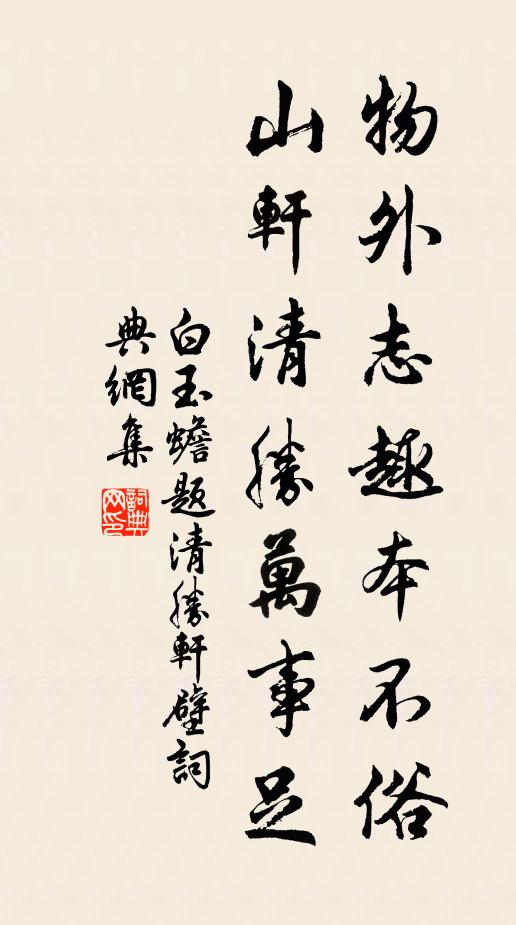 物外志趣本不俗
山軒清勝萬事足
白玉蟾题清勝軒壁詞
典網集
詞典网印